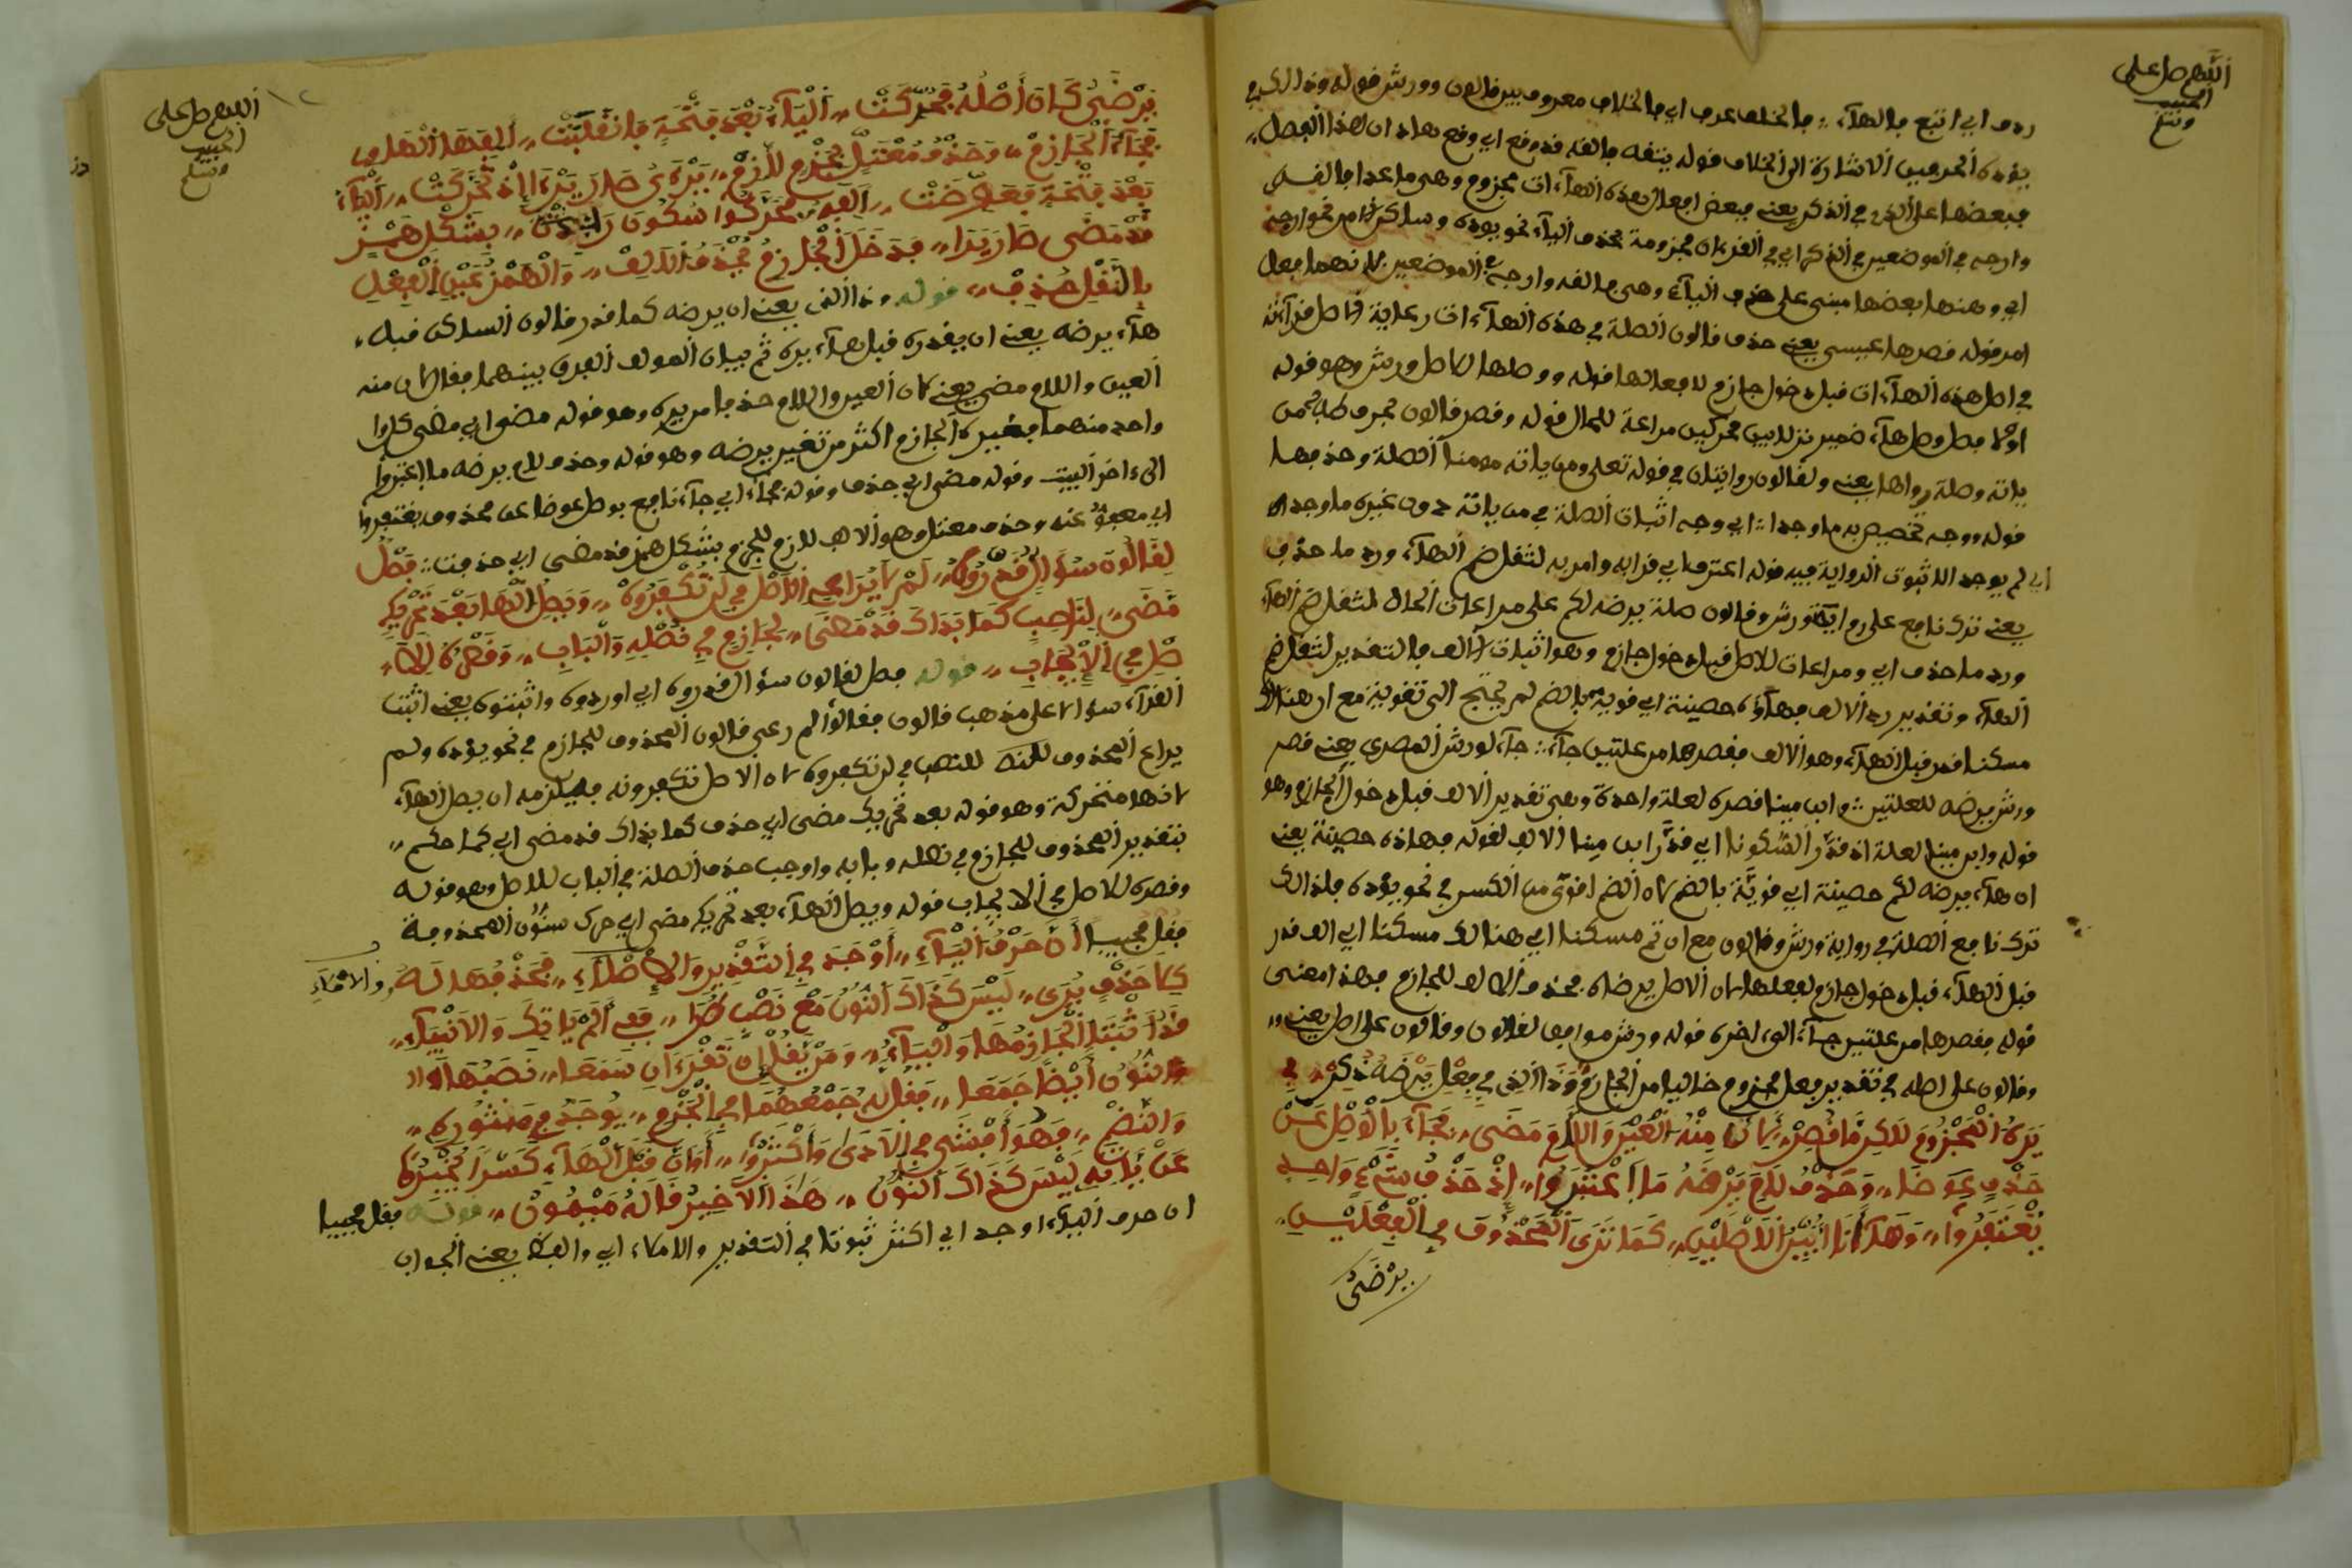 اللهم صل على
الحبيب
وسلم
ردف اي اتبع بالهاء ؞ بالخلف عرف اي بالخلاف معروف بين قالون وورش قوله وذا الكسر في
يؤده الحرفين الاشارة الى الخلاف قوله يتقه بالقه قد وقع اي وقع بعد ان لهذا الفصل
فبعضها على الذي في الذكر يعنه فبعض افعال بعده الهاء ات مجزوم وهي ما عدا بالقه
وارجه في الموضعين في الذكر اي في القرءان مجزومة بحذف الياء نحو يؤده
اي ومنها بعضها مبني على حذف الياء وهي بالقه وارجه في الموضعين لانهما فعل
امر قوله قصرها عيسى يعنى حذف قالون الصلة في هذه الهاء ات رعاية
في اصل هذه الهاء ات قبل دخول جازم لافعالها قوله ووصلها لاصل ورش وهو قوله
اولا فصل وصل هاء ضمير نزلا بين محركين مراعة للحال قوله وقصر قالون بحرف طه
ياته وصلة رواها يعنى ولقالون روايتان في قوله تعلى ومن ياته مومنا الصلة وحذفها
قوله ووجه تخصيص به ما وجدا ؞ اي وجه اثبات الصلة في من ياته دون غيره ما وجده
اي لم يوجد الا ثبوت الرواية فيه قوله اعترف اي قرا به وامر به لثقل ضم الهاء ورد ما حذف
يعنى ترك نافع على رواية ورش وقالون صلة يرضه لكم على مراعات الحال لثقل ضم الهاء
ورد ما حذف اي ومراعات للاصل قبل دخول جازم وهو اثبات الالف بالتقدير لثقل ضم
الهاء وتقدير رد الالف فهاؤه حصينة اي قوية بالضم لم يحتج الى تقوية مع ان هنالك
مسكنا قدر قبل الهاء وهو الالف فقصرها من علتين جاء ؞ جاء لورش المصري يعنى قصر
ورش يرضه للعلتين ؞ وابن مينا قصره لعلة واحدة وهي تقدير الالف قبل دخول الجازم وهو
قوله وابن مينا لعلة اذ قدر السكونا اي قدر ابن مينا الالف لقوله فهاذه حصينة يعنى
ان هاء يرضه لكم حصينة اي قوية بالضم لان الضم اقوى من الكسر في نحو يؤده فلذالك
ترك نافع الصلة في رواية ورش وقالون مع ان ثم مسكنا اي هنالك مسكنا اي الف قدر
قبل الهاء قبل دخول جازم لفعلها لان الاصل يرضاه بحذف الالف للجازم فهذا معنى
قوله فقصرها من علتين جاء الى ءاخره قوله ورش موافقا لقالون وقالون على اصل يعنى
وقالون على اصله في تقدير فعل مجزوم خاليا من الجازم وذا الذي في فعل يرضه ذكر في
يره المجزوم لاكن ما قصر لان منه العين واللام مضى فجاء بالوصل عن
حذف عوضا وحذف لام يرضه ما اعتبروا اذ حذف شيء واحد
يغتفروا وها انا ابين الاصلين كما ترى المحذوف في الفعلين
يرضى
اللهم صل على
الحبيب
وسلم
١٢
يرضي كان اصله فحركت الياء بعد فتحة فانقلبت الفها
فجاء الجازم وحذف معتل بجزم لازم يرءى صار يرءا اذ تحركت الياء
بعد فتحة فعوضت الف فحركوا سكون راء بشكل همز
قد مضى صار يرا فدخل الجازم بحذف الالف والهمز عين الفعل
بالنقل حذف قوله وذا الذي يعنى ان يرضه كما قدر قالون الساكن قبله
هاء يرضه يعنى ان يقدره قبل هاء يره ثم بيان المولف الفرق بينهما فقال لان منه
العين واللام مضى يعنى لان العين واللام حذفا من يره وهو قوله مضى اي مضى كلوا
واحد منهما فتغييره الجازم اكثر من تغيير يرضه وهو قوله وحذف لام يرضه ما اعتبروا
الى ءاخر البيت وقوله مضى اي حذف وقوله فجاء اي جاء نافع بوصل عوضا عن محذوف يغتفروا
اي معفو عنه وحذف معتل وهو الالف لازم للجزم بشكل همز قد مضى اي حذفت ؞ فصل
لقالون سؤال قدروه لم لا يراعي الاصل في لن تكفروه ويصل الها بعد تحريك
مضى لناصب كما بذاك قد مضى لجازم في نصله والباب وقصره للا
صل في الايجاب قوله فصل لقالون سؤال قدروه اي اوردوه واثبتوه يعنى اثبت
القراء سؤالا على مذهب قالون فقالوا لم رعى قالون المحذوف للجازم في نحو يؤده ولم
يراع المحذوف للنصب في لن تكفروه لان الاصل تكفرونه فيلزمه ان يصل الهاء
لانها متحركة وهو قوله بعد تحريك مضى اي حذف كما بذاك قد مضى اي كما حكم
بتقدير المحذوف للجازم في نصله وبابه واوجب حذف الصلة في الباب للاصل وهو قوله
وقصره للاصل في الايجاب قوله ويصل الهاء بعد تحريك مضى اي حرك سكون المحذوفة
فقل مجيبا ان حرف الياء اوجد في التقدير والاملاء فحذفها له
كلا حذف يرى ليس كذاك النون مع نصب طرا ففي الم ياتيك والانبياء
قد اثبت الجازمها والياء ومن يقل ان تقرءان سمعا نصبها
والنون ايضا جمعا فقل له جمعهما في الجزم يوجد في منثوره
والنظم فهو افشى في الادى واكثروا او ان قبل الهاء كسرا يخبره
عن بابه ليس كذاك النون هذا الاخير قاله ميمون قوله فقل مجيبا
ان حرف الياء اوجد اي اكثر ثبوتا في التقدير والاملاء اي والفظ يعنى الجواب